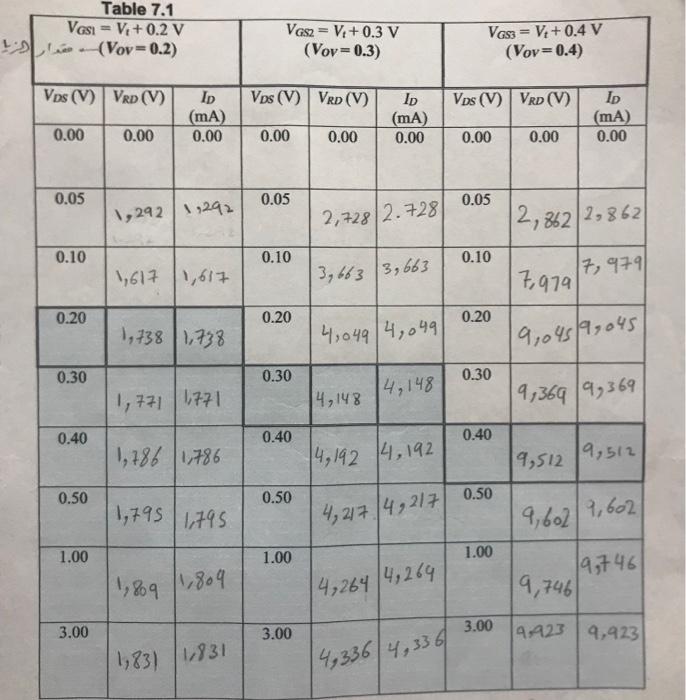 Table 7.1
VGS1 = Vt + 0.2 V VGS2 = Vt + 0.3 V VGS3 = Vt + 0.4 V
مقدار (VOV = 0.2) (VOV = 0.3) (VOV = 0.4)
VDS (V) VRD (V) ID (mA) VDS (V) VRD (V) ID (mA) VDS (V) VRD (V) ID (mA)
0.00 0.00 0.00 0.00 0.00 0.00 0.00 0.00 0.00
0.05 1,292 1,292 0.05 2,728 2.728 0.05 2,862 2,862
0.10 1,617 1,617 0.10 3,663 3,663 0.10 7,979 7,979
0.20 1,738 1,738 0.20 4,049 4,049 0.20 9,045 9,045
0.30 1,771 1,771 0.30 4,148 4,148 0.30 9,369 9,369
0.40 1,786 1,786 0.40 4,192 4,192 0.40 9,512 9,512
0.50 1,795 1,795 0.50 4,217 4,217 0.50 9,602 9,602
1.00 1,809 1,809 1.00 4,264 4,264 1.00 9,746 9,746
3.00 1,831 1,831 3.00 4,336 4,336 3.00 9,923 9,923